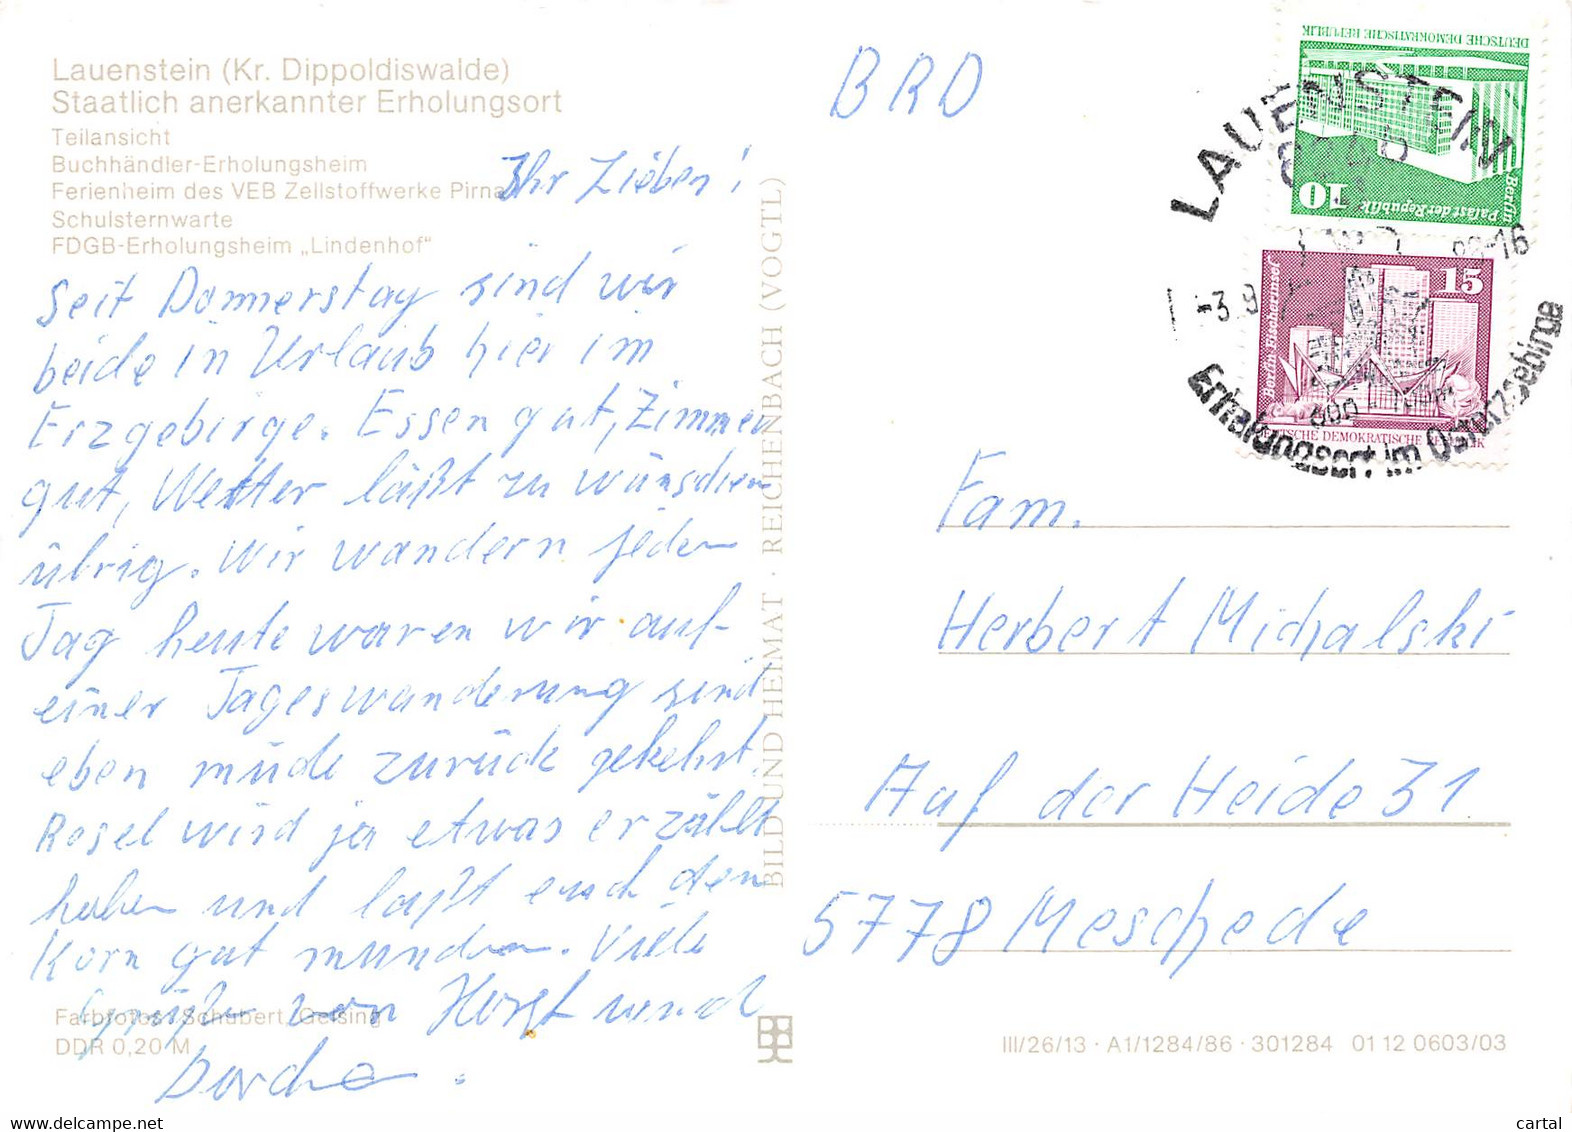 Lauenstein (Kr. Dippoldiswalde)
Staatlich anerkannter Erholungsort
Teilansicht
Buchhändler-Erholungsheim
Ferienheim des VEB Zellstoffwerke Pirna
Schulsternwarte
FDGB-Erholungsheim „Lindenhof“
Ihr Lieben!
Seit Donnerstag sind wir
beide in Urlaub hier im
Erzgebirge. Essen gut, Zimmer
gut, Wetter läßt zu wünschen
übrig. Wir wandern jeden
Tag heute waren wir auf
einer Tageswanderung sind
eben müde zurück gekehrt.
Rosel wird ja etwas erzählt
haben und laßt euch den
Korn gut munden. Viele
Grüße von Horst und
Farbfotos: Schubert, Geising
DDR 0,20 M
BILD UND HEIMAT · REICHENBACH (VOGTL)
BRD
DEUTSCHE DEMOKRATISCHE REPUBLIK
Berlin
Palast der Republik
10
15
Berlin-Fischerinsel
DEUTSCHE DEMOKRATISCHE REPUBLIK
LAUENSTEIN
-3.9
-16
Erholungsort im Osterzgebirge
Fam.
Herbert Michalski
Auf der Heide 31
5778 Meschede
III/26/13 · A1/1284/86 · 301284 01 12 0603/03
www.delcampe.net
cartal